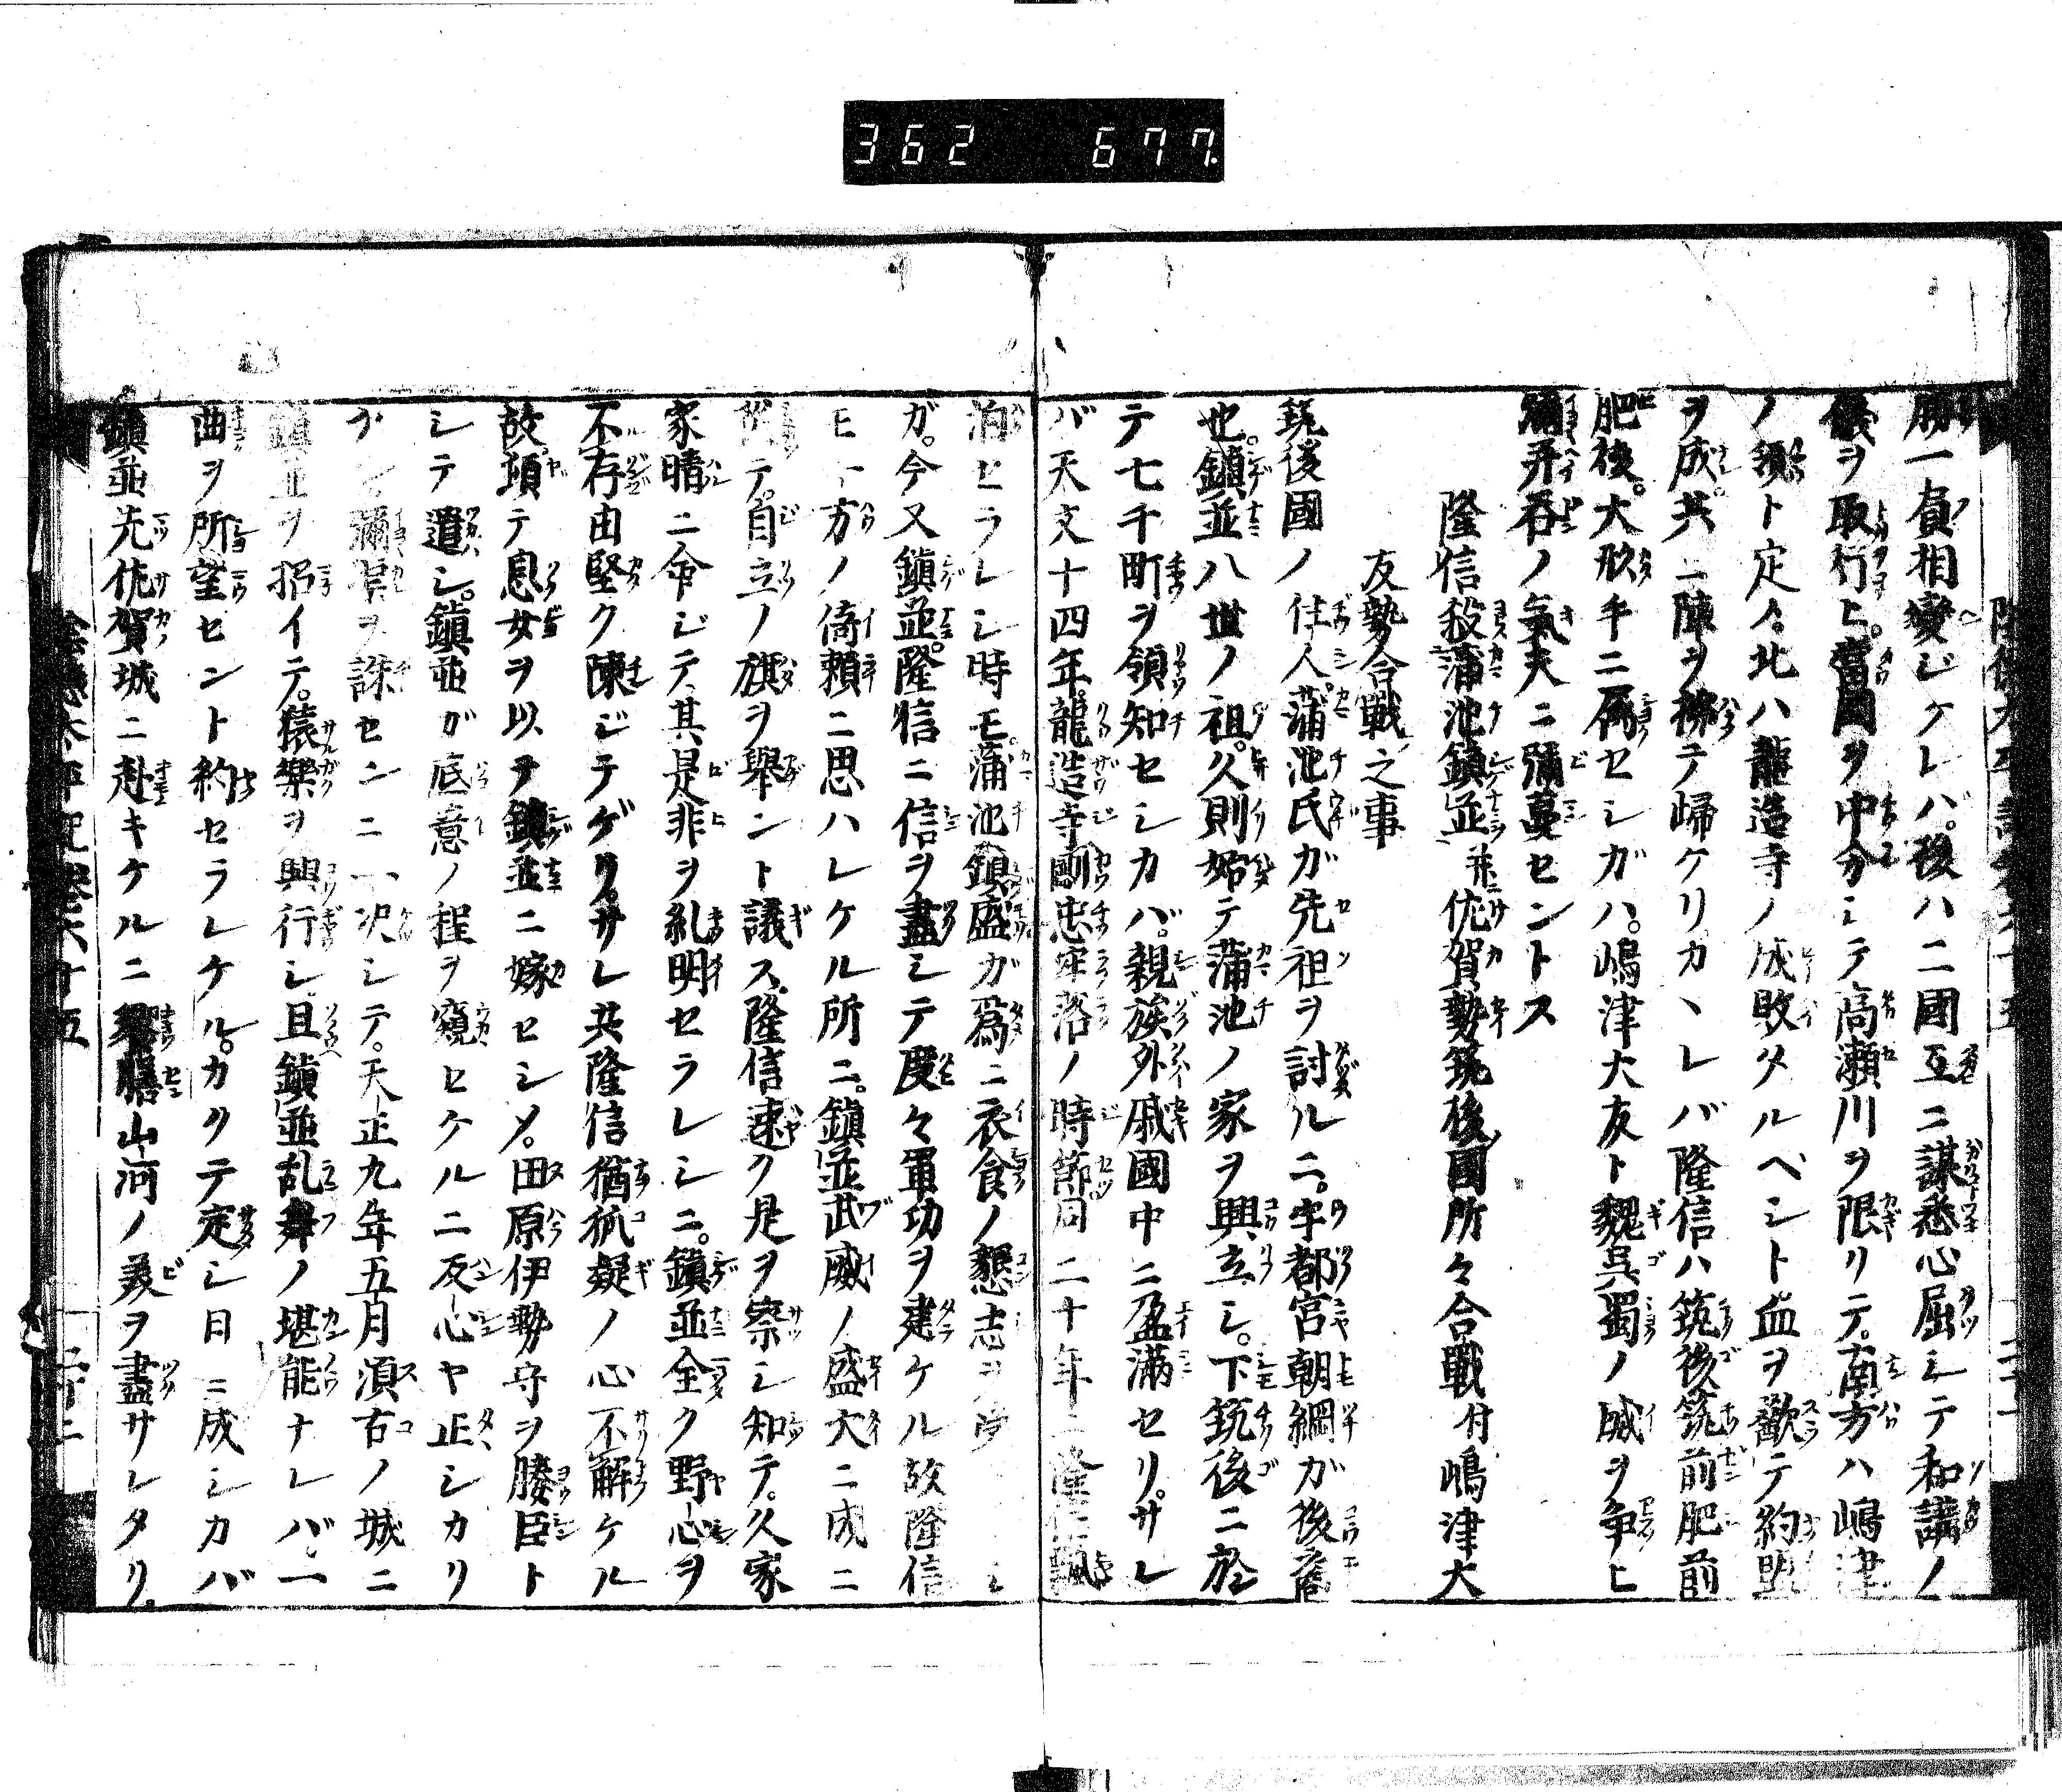 362 677
勝一負相變ジケレバ。後ハ二國互ニ謀悉心屈シテ和講ノ
儀ヲ取行ヒ。當國ヲ中分シテ高瀬川ヲ限リテ。南方ハ嶋津
ノ領ト定メ。北ハ龍造寺ノ成敗タルベシト血ヲ歃テ約盟
ヲ成。共ニ陣ヲ拂テ歸ケリ。カヽレバ隆信ハ筑後筑前肥前
肥後。大形手ニ屬セシガハ。嶋津大友ト魏呉蜀ノ威ヲ争ヒ
彌弄呑ノ氣夫ニ彌蔓セントス
隆信殺蒲池鎮並并佐賀勢筑後國所々合戰付嶋津大
友勢合戰之事
筑後國ノ住人。蒲池氏ガ先祖ヲ討ルニ。宇都宮朝綱ガ後裔
也。鎮並八世ノ祖。久則始テ蒲池ノ家ヲ興立シ。下筑後ニ於
テ七千町ヲ領知セシカバ。親族外戚國中ニ盈滿セリ。サレ
バ天文十四年。龍造寺剛忠牢落ノ時節。同二十年ニ隆信飄
泊セラレシ時モ。蒲池鎮盛ガ爲ニ衣食ノ懇志ヲ
ガ。今又鎮並。隆信ニ信ヲ盡シテ度々軍功ヲ建ケル故隆信
モ一方ノ倚賴ニ思ハレケル所ニ。鎮並武威ノ盛大ニ成ニ
テ。自立ノ旗ヲ舉ント議ス。隆信速ク是ヲ察シ知テ。久家
家晴ニ命ジテ其是非ヲ糺明セラレシニ。鎮並全ク野心ヲ
不存由堅ク陳ジテゲリ。サレ共隆信猶狐疑ノ心不解ケル
故。項テ息女ヲ以テ鎮並ニ嫁セシメ。田原伊勢守ヲ媵臣ト
シテ遣シ。鎮並ガ底意ノ程ヲ窺セケルニ反心ヤ正シカリ
ヲ誅センニ一决シテ。天正九年五月須古ノ城ニ
鎮並ヲ招イテ。猿樂ヲ興行シ。且鎮並乱舞ノ堪能ナレバ。一
曲ヲ所望セント約セラレケル。カクテ定シ日ニ成シカバ
鎮並先佐賀城ニ赴キケルニ饗膳山河ノ美ヲ盡サレタリ。